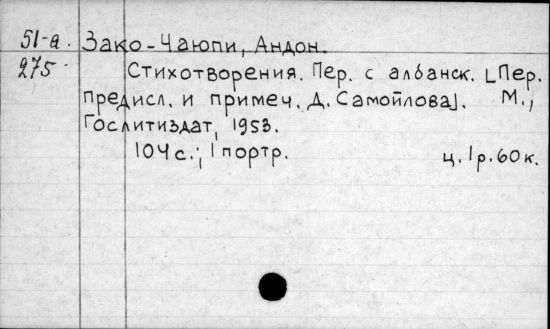 51-а. Зако-Чаюпи, Андон.
275 Стихотворения. Пер. с албанск. [Пер.
предисл. и примеч. Д. Самойлова]. М.,
Гослитиздат, 1953.
104 с.; 1 портр. ц. 1р. 60к.